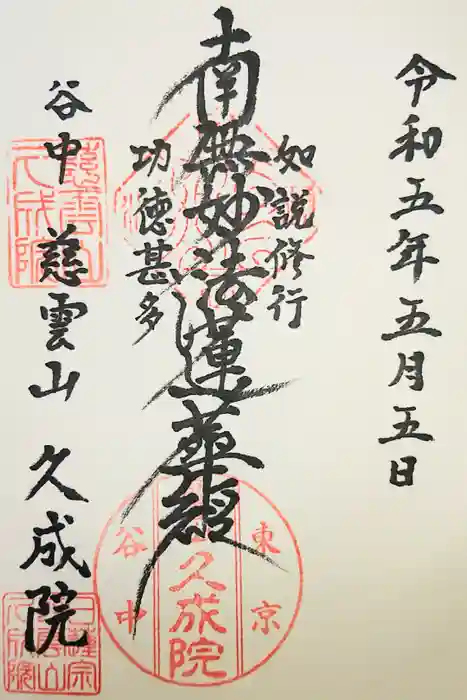 令和五年五月五日
如説修行
南無妙法蓮華経
功徳甚多
谷中 慈雲山 久成院
東京
久成院
谷中
慈雲山
久成院